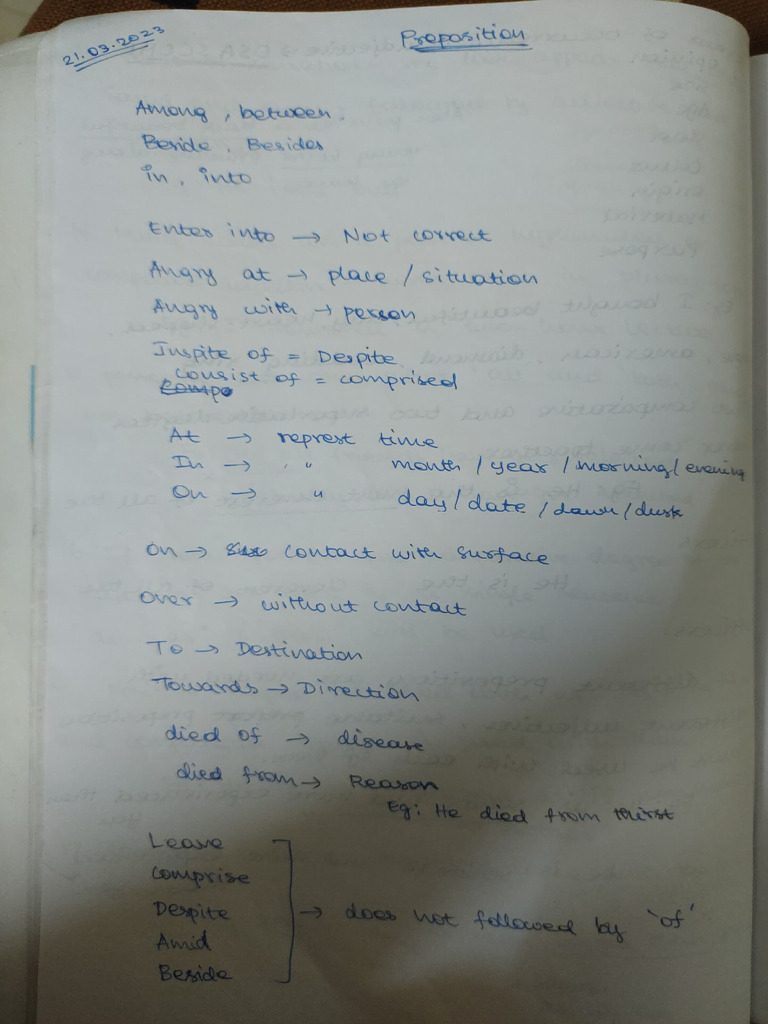 21.03.2023
Preposition
Among, between.
Beside, Besides
in, into
Enter into → Not correct
Angry at → place / situation
Angry with → person
Inspite of = Despite
consist of = comprised
At → represt time
In → " month / year / morning / evening
On → " day / date / dawn / dusk
On → contact with surface
Over → without contact
To → Destination
Towards → Direction
died of → disease
died from → Reason
Eg: He died from thirst
Leave
Comprise
Despite → does not followed by 'of'
Amid
Beside